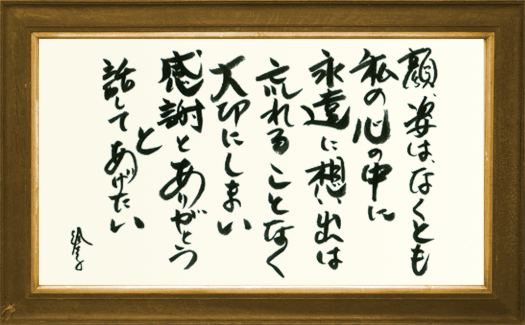 顔、姿は、なくとも
私の心の中に
永遠に想い出は
忘れることなく
大切にしまい
感謝とありがとう
と
話してあげたい